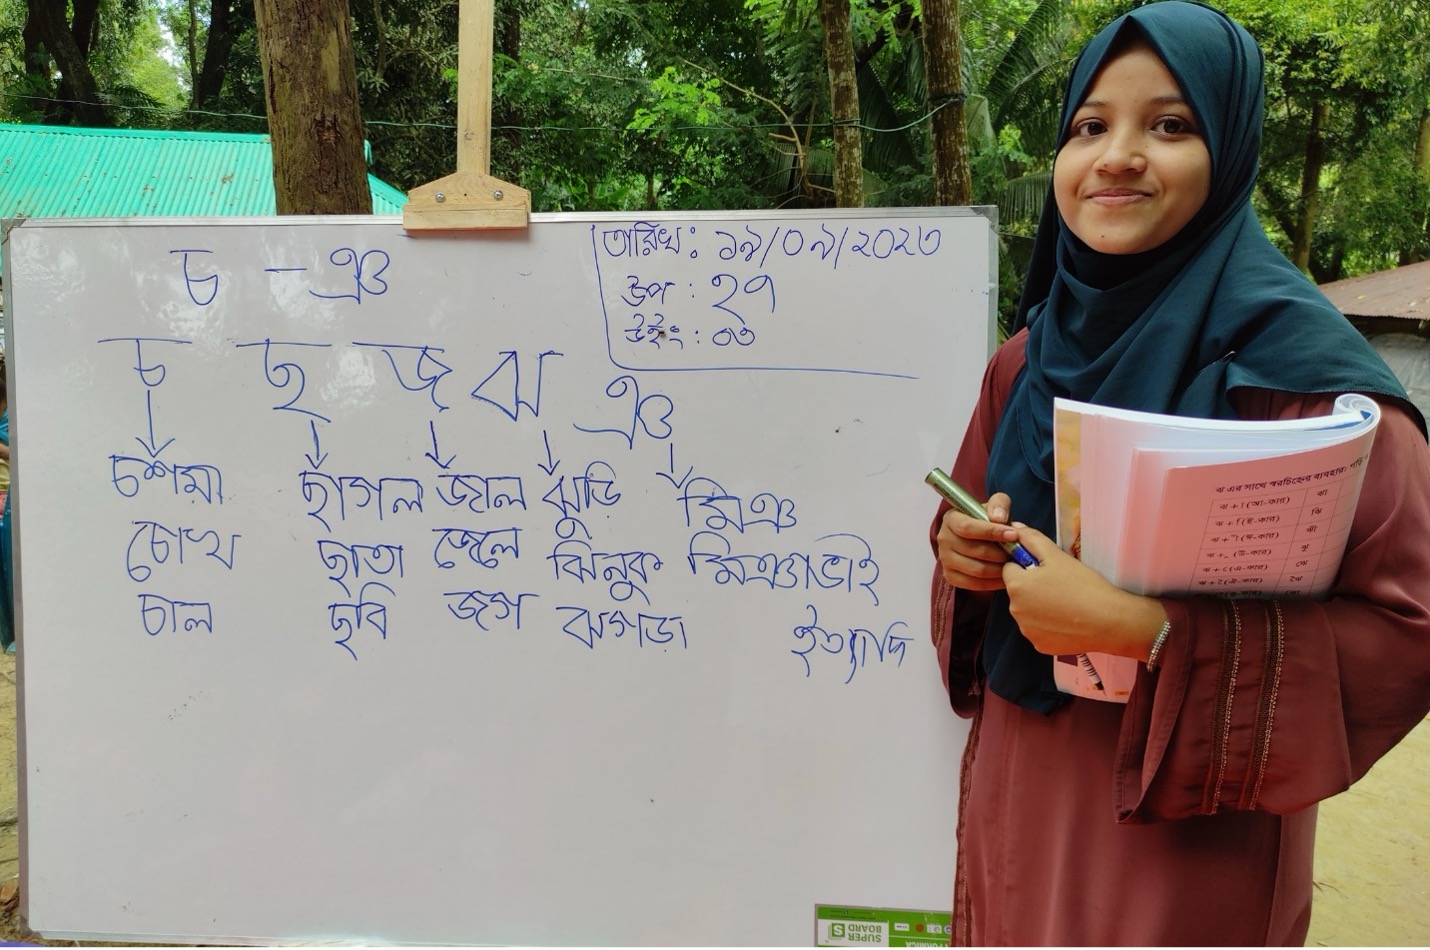 চ - ঞ
তারিখঃ ১৯/০৯/২০২৩
উপ : ২৭
উইং : ০৩
চ ছ জ ঝ ঞ
চশমা ছাগল জাল ঝুড়ি মিঞ
চোখ ছাতা জেলে ঝিনুক মিঞাভাই
চাল ছবি জগ ঝগড়া ইত্যাদি
ঝ এর সাথে স্বরচিহ্নের ব্যবহার:
ঝ + া (আ-কার) ঝা
ঝ + ি (ই-কার) ঝি
ঝ + ী (ঈ-কার) ঝী
ঝ + ু (উ-কার) ঝু
ঝ + ে (এ-কার) ঝে
ঝ + ৈ (ঐ-কার) ঝৈ
SUPER
BOARD S